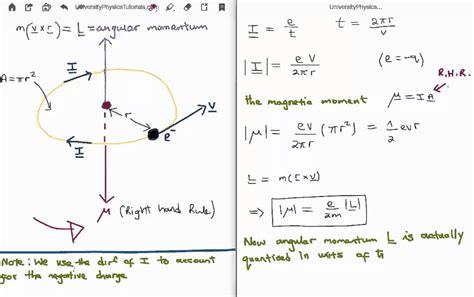 UniversityPhysicsTutorials.com
m(v×r) = L = angular momentum
A=πr²
I
r
v
e⁻
I
μ (Right hand Rule)
Note: We use the dirⁿ of I to account
for the negative charge
UniversityPhysics...
I = e/t t = 2πr/v
|I| = ev/2πr (e = -q)
R.H.R.
the magnetic moment μ = IA
|μ| = ev/2πr (πr²) = 1/2 evr
L = m(r×v)
⇒ |μ| = e/2m |L|
Now angular momentum L is actually
quantised in units of ħ